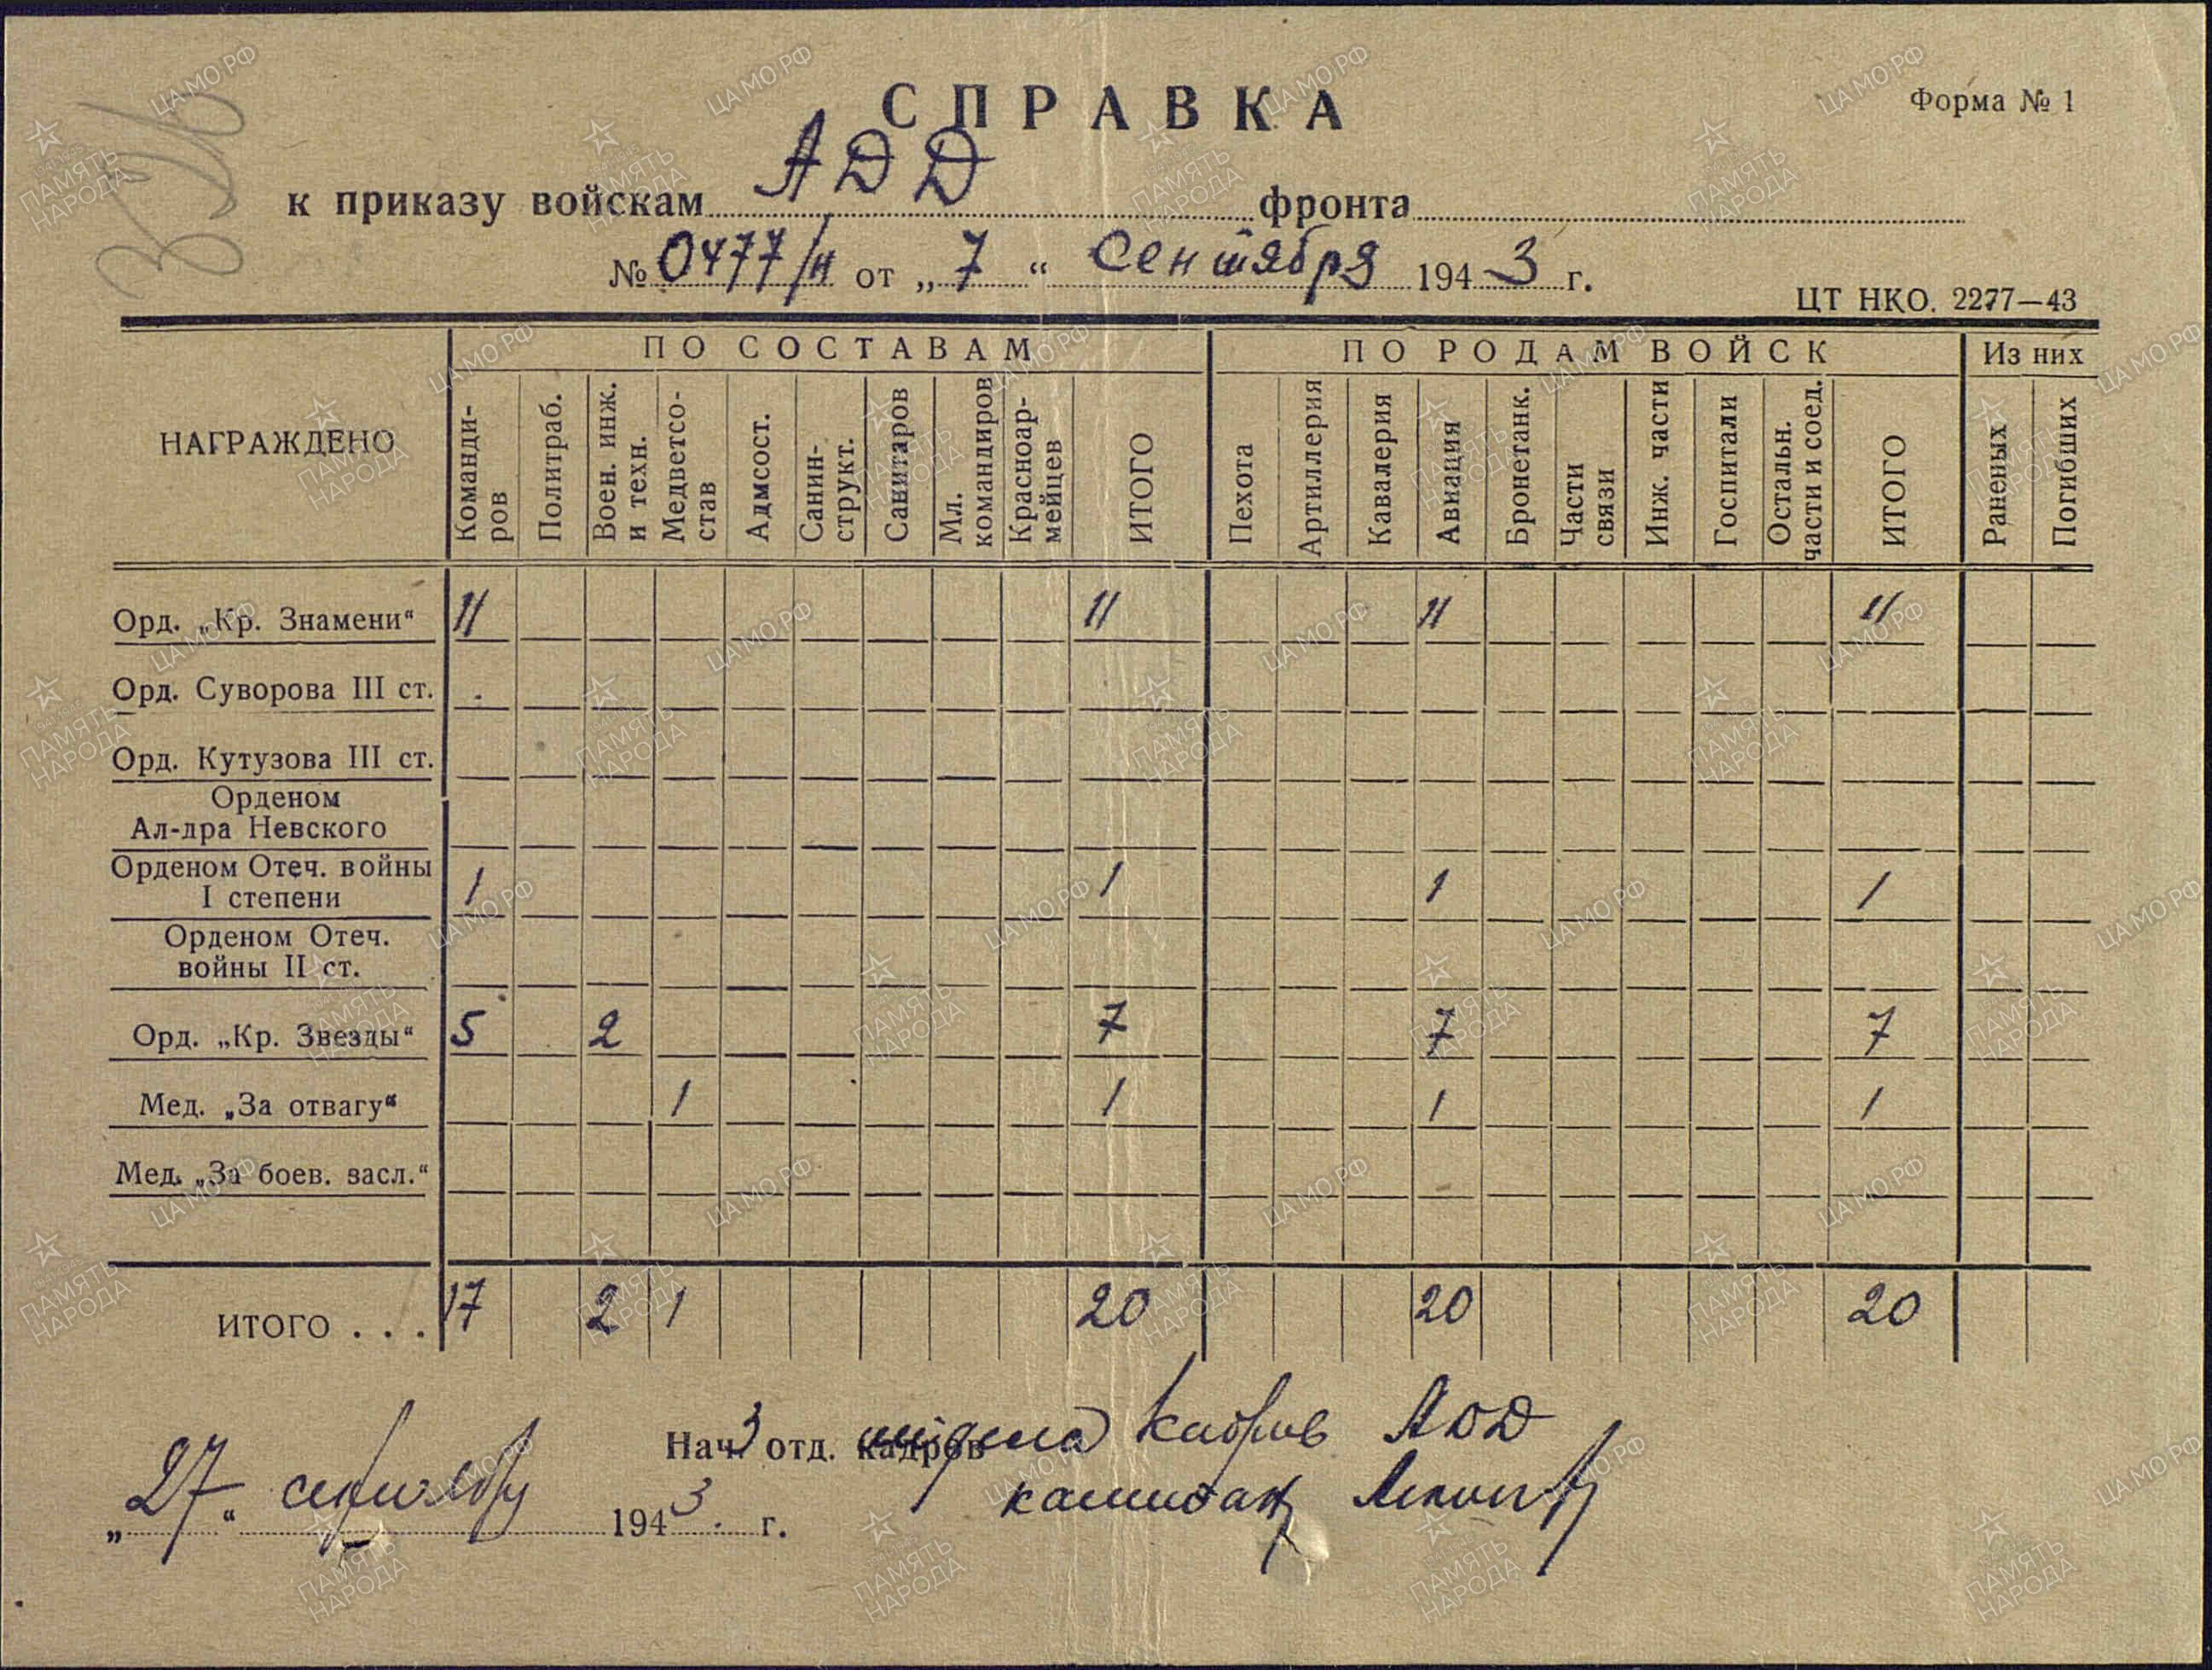 СПРАВКА
Форма № 1
к приказу войскам АДД фронта
№ 0477/н от „7“ Сентября 1943 г.
ЦТ НКО. 2277—43
НАГРАЖДЕНО
ПО СОСТАВАМ
ПО РОДАМ ВОЙСК
Из них
Команди-
ров
Политраб.
Воен. инж.
и техн.
Медветсо-
став
Адмсост.
Санин-
структ.
Санитаров
Мл.
командиров
Красноар-
мейцев
ИТОГО
Пехота
Артиллерия
Кавалерия
Авиация
Бронетанк.
Части
связи
Инж. части
Госпитали
Остальн.
части и соед.
ИТОГО
Раненых
Погибших
Орд. „Кр. Знамени“ 11 11 11 11
Орд. Суворова III ст.
Орд. Кутузова III ст.
Орденом
Ал-дра Невского
Орденом Отеч. войны
I степени 1 1 1 1
Орденом Отеч.
войны II ст.
Орд. „Кр. Звезды“ 5 2 7 7 7
Мед. „За отвагу“ 1 1 1 1
Мед. „За боев. засл.“
ИТОГО . . . 17 2 1 20 20 20
Нач. 3 отд. кадров отдела кадров АДД
капитан
„27“ сентября 1943 г.
ЦАМО.РФ
ПАМЯТЬ
НАРОДА